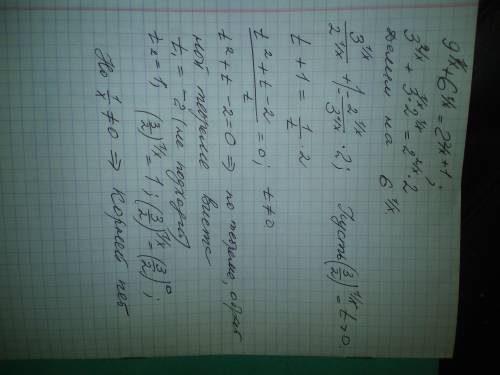 9^{1/x} + 6^{1/x} = 2^{2/x + 1};
3^{2/x} + 3^{1/x}·2^{1/x} = 2^{2/x}·2
делим на 6^{1/x}
3^{1/x}/2^{1/x} + 1 = 2^{1/x}/3^{1/x} · 2; Пусть (3/2)^{1/x} = t > 0
t + 1 = 1/t · 2
(t² + t − 2)/t = 0; t ≠ 0
t² + t − 2 = 0 ⇒ по теореме, обрат
ной теореме Виета
t₁ = −2 (не подходит)
t₂ = 1; (3/2)^{1/x} = 1; (3/2)^{1/x} = (3/2)⁰;
Но 1/x ≠ 0 ⇒ Корней нет